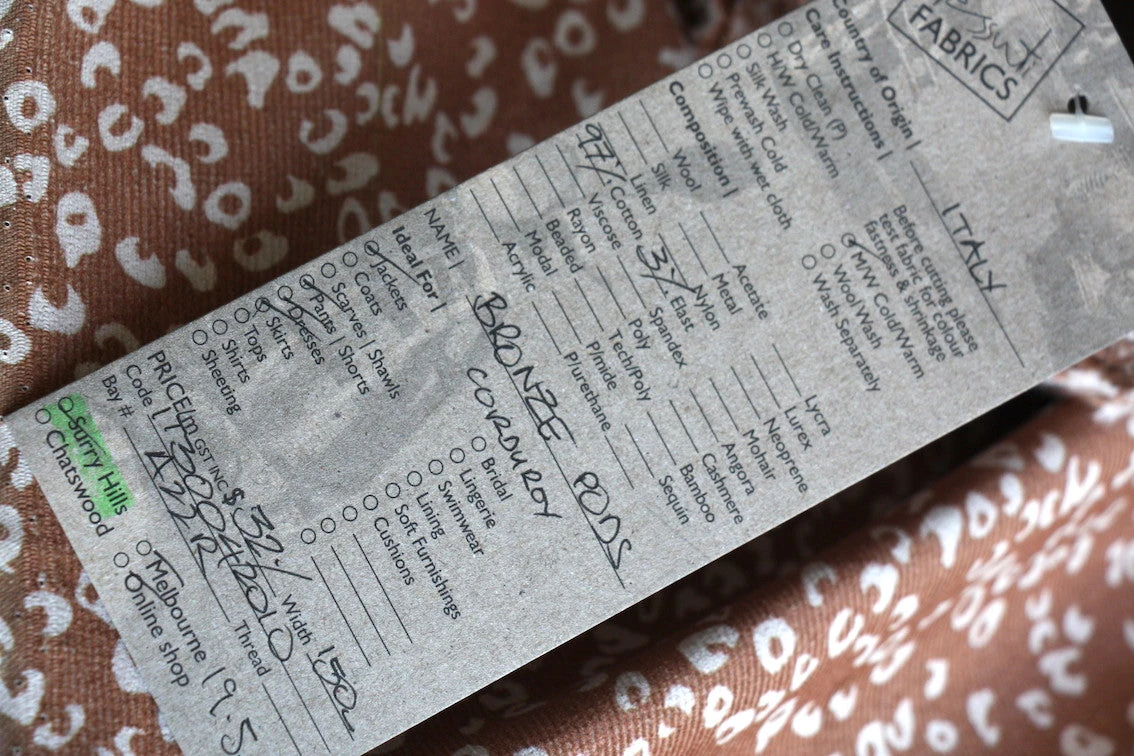 Tessuti
FABRICS
Country of Origin | ITALY
Care Instructions |
Dry Clean (P)
H/W Cold/Warm
Silk Wash
Prewash Cold
Wipe with wet cloth
Before cutting please
test fabric for colour
fastness & shrinkage
M/W Cold/Warm
Wool Wash
Wash Separately
Composition |
Wool
Silk
Linen
97% Cotton
Viscose
Rayon
Beaded
Modal
Acrylic
Acetate
Metal
Nylon
3% Elast
Spandex
Poly
Tech/Poly
P/nide
P/urethane
Lycra
Lurex
Neoprene
Mohair
Angora
Cashmere
Bamboo
Sequin
NAME | BRONZE PODS
CORDUROY
Ideal For |
Jackets
Coats
Scarves | Shawls
Pants | Shorts
Dresses
Skirts
Tops
Shirts
Sheeting
Bridal
Lingerie
Swimwear
Lining
Soft Furnishings
Cushions
PRICE/m GST INC $ 32.- Width 150
Code
Bay # A22R Thread
Surry Hills
Chatswood
Melbourne 19.5
Online shop